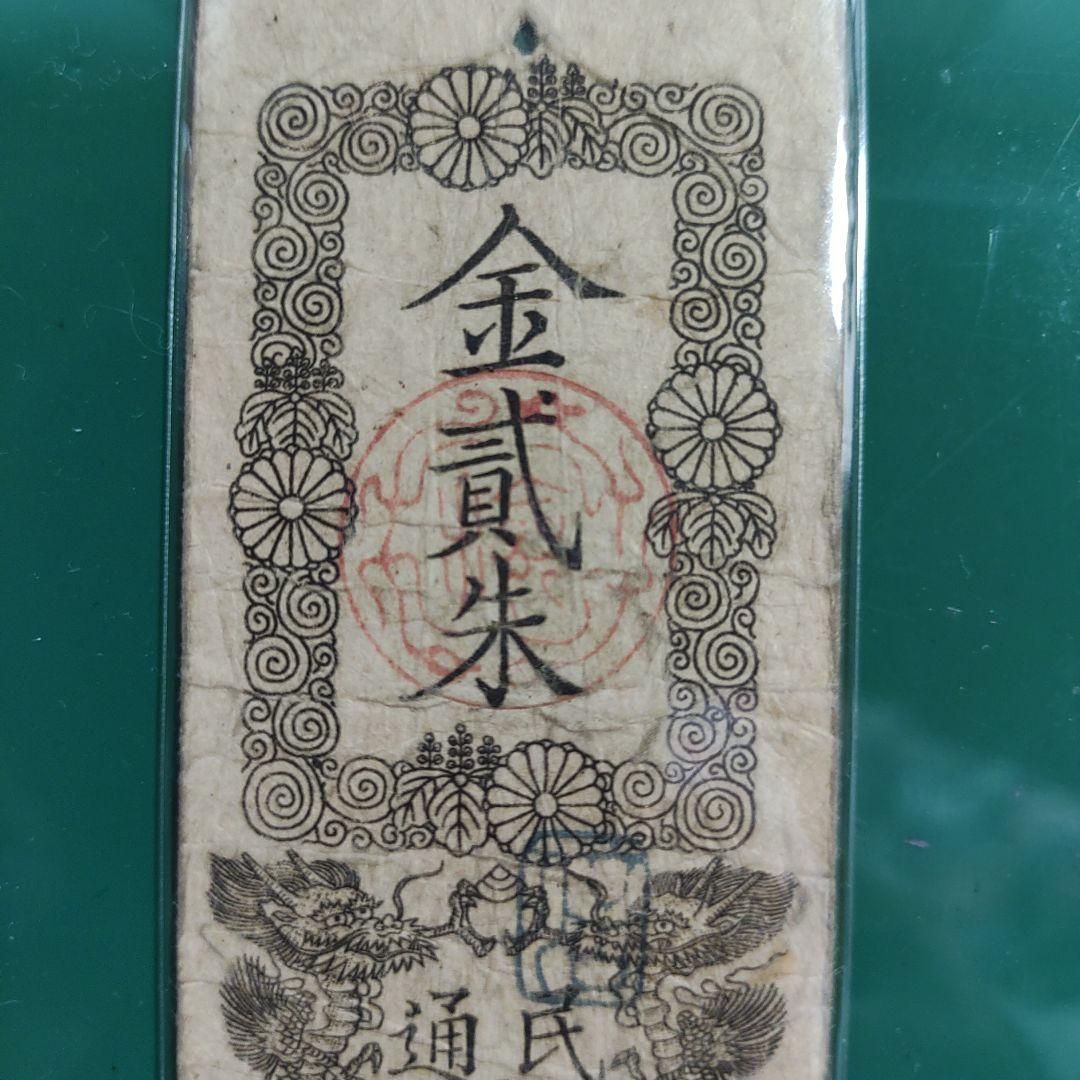 金貳朱
民通